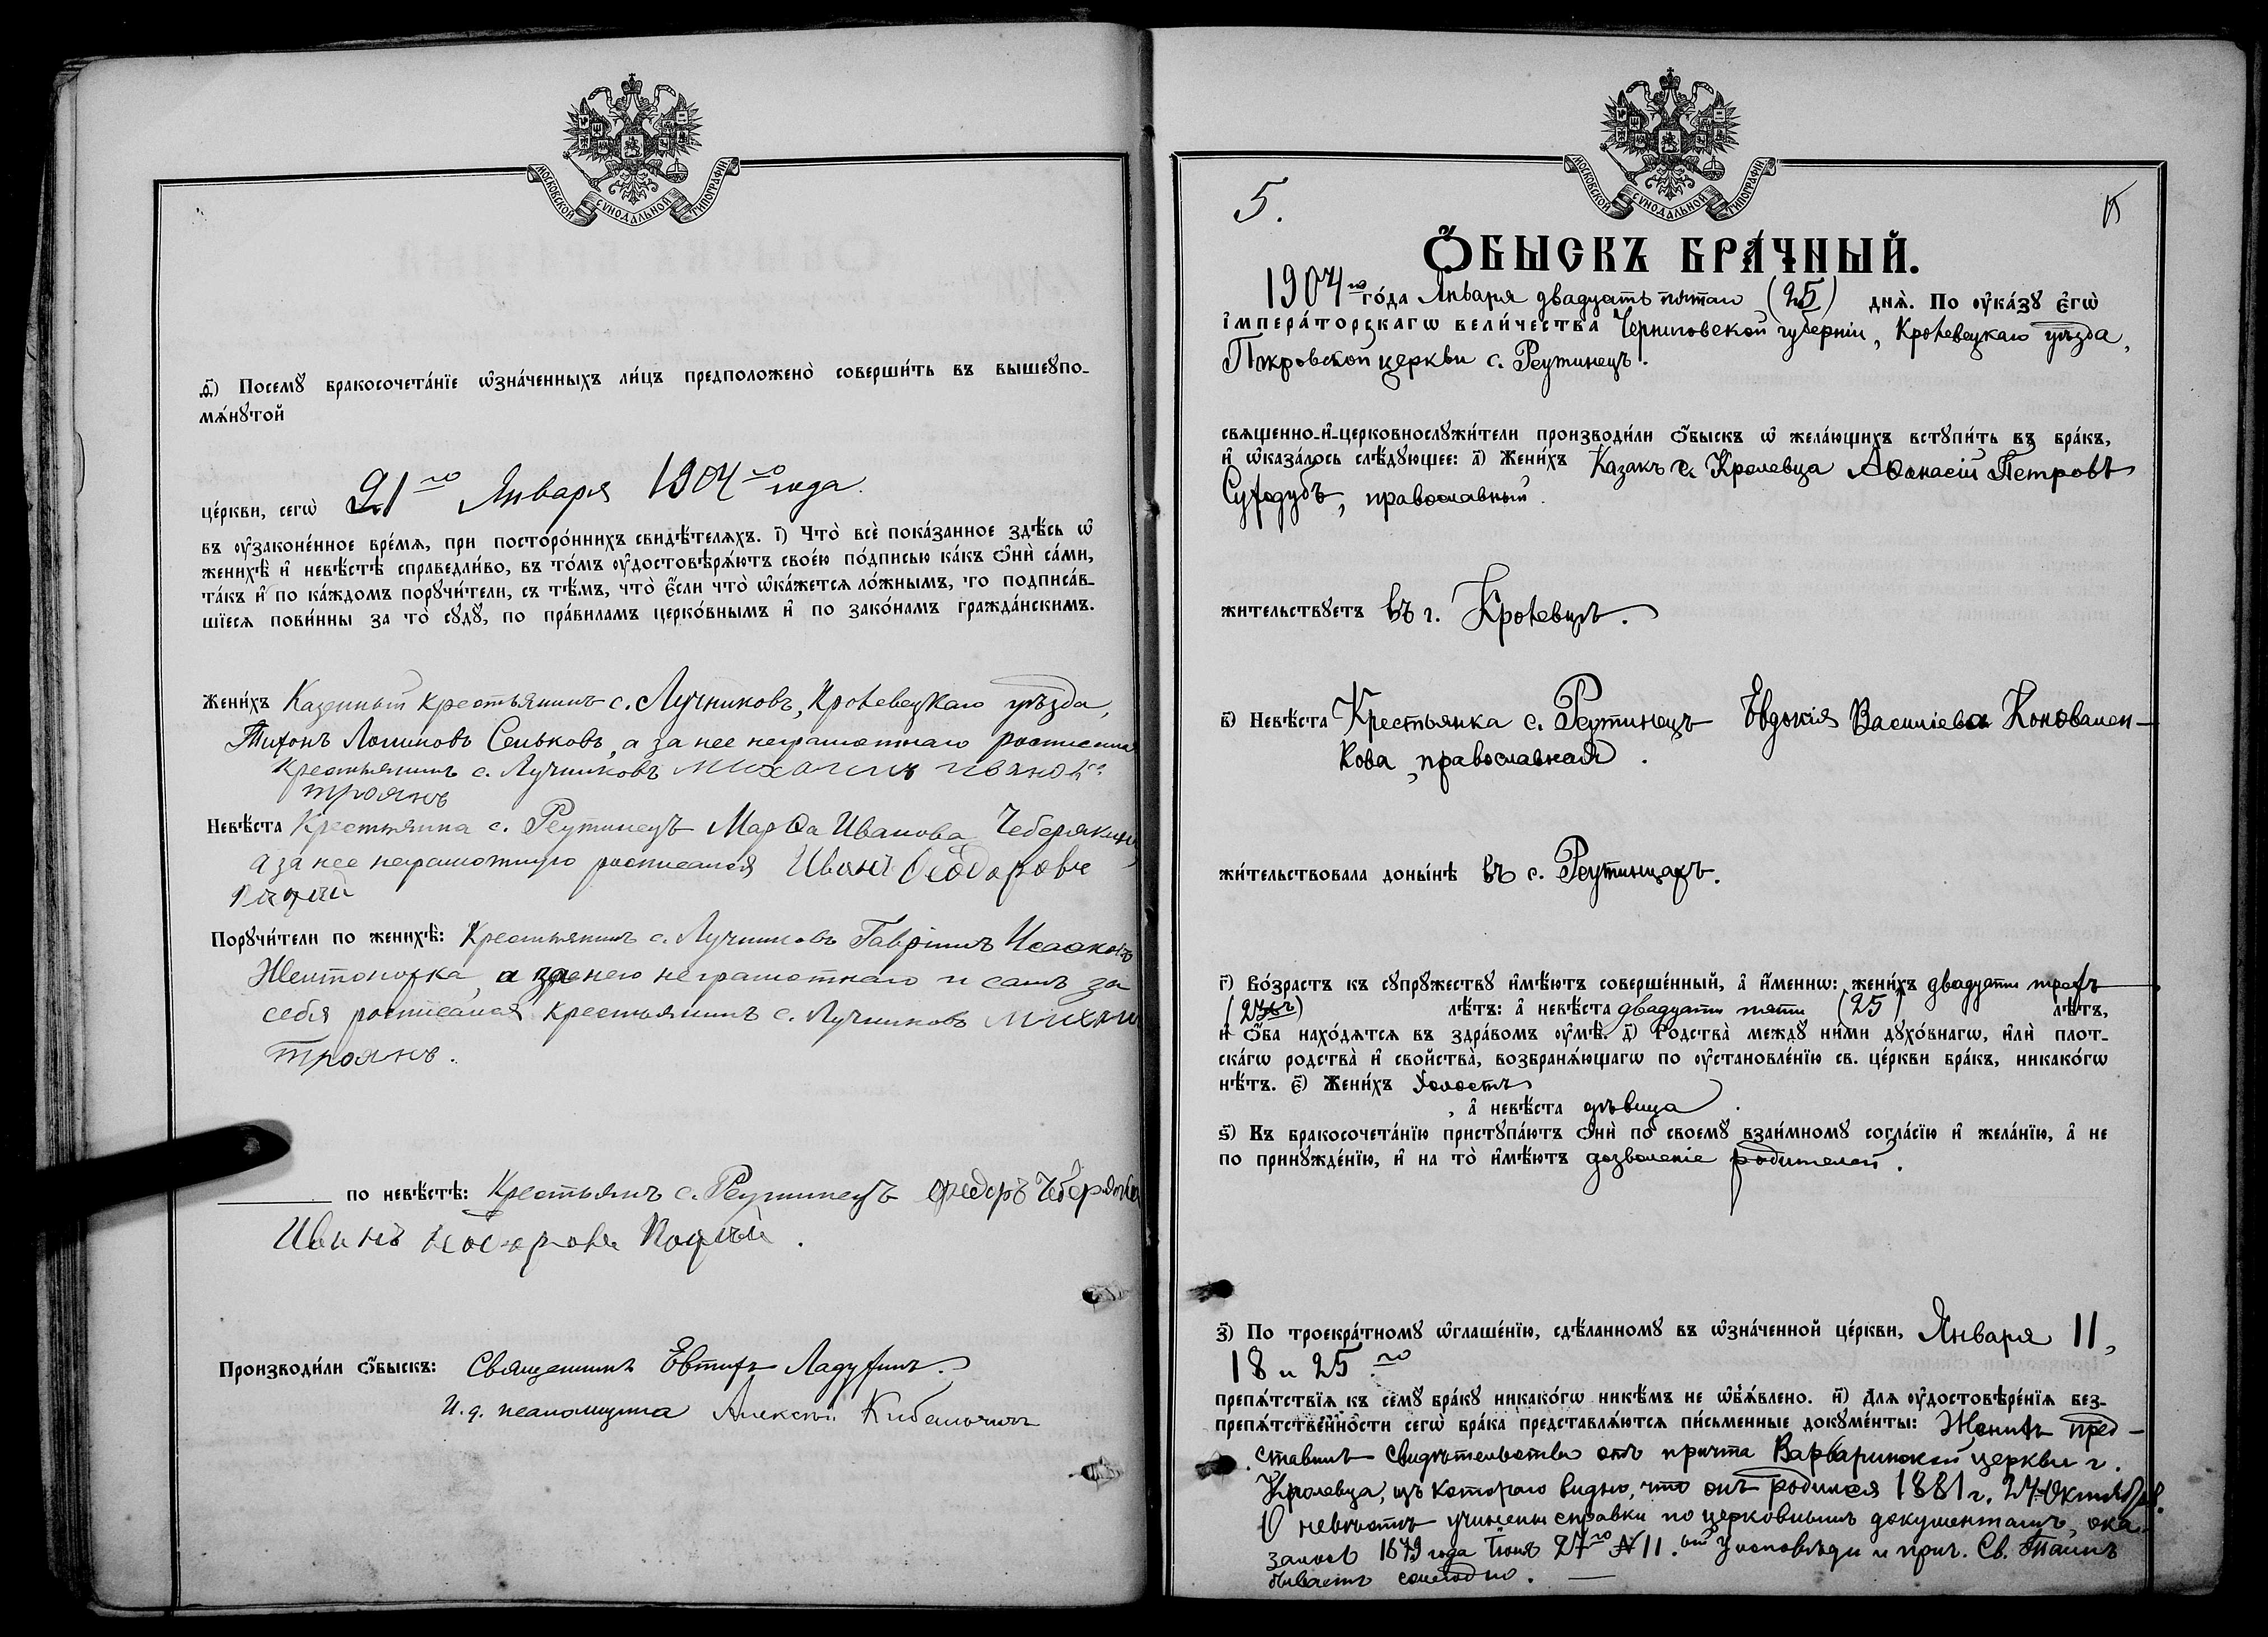 МОСКОВСКОЙ СѴНОДАЛЬНОЙ ТИПОГРАФІИ
Посемꙋ̀ бракосочета́нїе ѡ҆зна́ченныхъ ли́цъ предположено̀ соверши́ть въ вышеꙋпо-
мѧ́нꙋтой
це́ркви, сегѡ̀ 21го Января 1904го года.
въ ᲂу҆законе́нное вре́мѧ, при посторо́ннихъ свидѣ́телѧхъ. і҃) Что̀ всѐ пока́занное здѣ́сь ѡ҆
женихѣ̀ и҆ невѣ́стѣ справедли́во, въ то́мъ ᲂу҆достовѣрѧ́ютъ свое́ю по́дписью ка́къ ѻ҆нѝ са́ми,
та́къ и҆ по ка́ждомъ порꙋчи́тели, съ тѣ́мъ, что̀ є҆́сли что̀ ѡ҆ка́жетсѧ ло́жнымъ, то подписа́в-
шїесѧ пови́нны за то̀ сꙋдꙋ̀, по пра́виламъ церко́внымъ и҆ по зако́намъ гражда́нскимъ.
Жени́хъ Казенный крестьянинъ с. Лучниковъ, Кролевецкаго уѣзда,
Тихонъ Логиновъ Сеньковъ, а за нее неграмотнаго росписался
Крестьянинъ с. Лучниковъ михаилъ иванов
троянъ
Невѣ́ста Крестьянка с. Реутинецъ Марѳа Иванова
а за нее неграмотную росписался Иванъ Ѳеодоровъ
Порꙋчи́тели по женихѣ̀: Крестьянинъ с. Лучниковъ Гавріилъ Исааковъ
а за него неграмотнаго и самъ за
себя росписался крестьянинъ с. Лучниковъ
троянъ.
по невѣ́стѣ: Крестьянинъ с. Реутинецъ Федоръ
Иванъ
Производи́ли ѻ҆́быскъ: Священникъ Евтихъ Ладухинъ.
И. д. псаломщика Алексѣй
МОСКОВСКОЙ СѴНОДАЛЬНОЙ ТИПОГРАФІИ
5.
Ѻ҆́БЫСКЪ БРА́ЧНЫЙ.
1904го го́да Января двадцать пятаго (25) днѧ̀. По ᲂу҆ка́зꙋ є҆гѡ̀
і҆мпера́торскагѡ вели́чества Черниговской губерніи, Кролевецкаго уѣзда,
Покровской церкви с. Реутинецъ.
свѧщенно-и҆-церковнослꙋжи́тели производи́ли ѻ҆́быскъ ѡ҆ жела́ющихъ встꙋпи́ть въ бра́къ,
и҆ ѡ҆каза́лось слѣ́дꙋющее: а҃) Жени́хъ Казакъ г. Кролевца Аѳанасій Петровъ
Суходубъ, православный.
жи́тельствꙋетъ въ г. Кролевцѣ.
в҃) Невѣ́ста Крестьянка с. Реутинецъ Евдокія Василіева Коновален-
кова, православная.
жи́тельствовала доны́нѣ въ с. Реутинцахъ.
г҃) Во́зрастъ къ сꙋпрꙋ́жествꙋ и҆мѣ́ютъ соверше́нный, а҆ и҆́меннѡ: жени́хъ двадцати трехъ
лѣ́тъ: а҆ невѣ́ста двадцати пяти (25) лѣ́тъ,
и҆ ѻ҆́ба нахо́дѧтсѧ въ здра́вомъ ᲂу҆мѣ̀. д҃) Родства̀ междꙋ̀ ни́ми дꙋхо́внагѡ, и҆лѝ плот-
ска́гѡ родства̀ и҆ свойства̀, возбранѧ́ющагѡ по ᲂу҆становле́нїю св. це́ркви бра́къ, никако́гѡ
нѣ́тъ. є҃) Жени́хъ холостъ
, а҆ невѣ́ста дѣвица.
ѕ҃) Къ бракосочета́нїю пристꙋпа́ютъ ѻ҆нѝ по своемꙋ̀ взаи́мномꙋ согла́сїю и҆ жела́нїю, а҆ не
по принꙋжде́нїю, и҆ на то̀ и҆мѣ́ютъ дозволеніе родителей.
з҃) По троекра́тномꙋ ѡ҆глаше́нїю, сдѣ́ланномꙋ въ ѡ҆зна́ченной це́ркви, Января 11,
18 и 25го
препѧ́тствїѧ къ семꙋ̀ бра́кꙋ никако́гѡ никѣ́мъ не ѡ҆бъѧ́влено. и҃) Для ᲂу҆достовѣре́нїѧ без-
препѧ́тственности сегѡ̀ бра́ка представлѧ́ютсѧ пи́сьменные докꙋме́нты: Женихъ пред-
ставилъ свидѣтельство отъ причта Варваринской церкви г.
Кролевца, изъ котораго видно, что онъ родился 1881 г. 24 Октября.
О невѣстѣ учинены справки по церковнымъ документамъ, ока-
залось 1879 года Іюня 27го № 11. у исповѣди и прич. Св. Таинъ
бываетъ ежегодно.